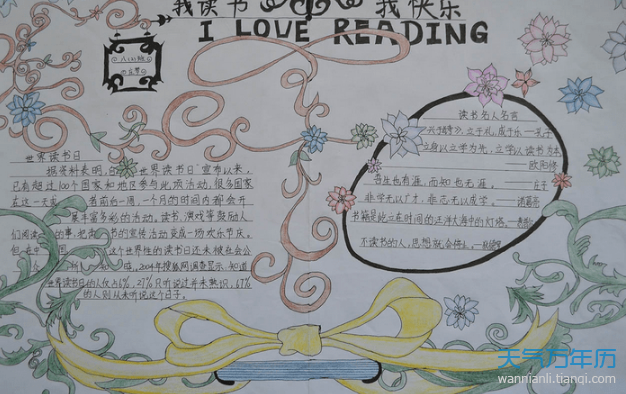 我读书 我快乐
I LOVE READING
世界读书日
据资料表明,自"世界读书日"宣布以来,
已有超过100个国家和地区参与此项活动。很多国家
在这一天或 书前后一周、一个月的时间内都会开
丰富多彩的活动。读书、演戏等鼓励人
们阅读 的事,把 书的宣传活动变成一场欢乐节庆。
这个世界性的读书日还未被社会公
2004年搜狐网调查显示,知道
世界读书日的人仅 27%只听说过并未熟识,67%
的人则从未听说这个日子。
读书名人名言
立于礼,成于乐——孔子
立身以立学为先,立学以读书为本
——欧阳修
吾生也有涯,而知也无涯。——庄子
非学无以广才,非志无以成学。——诸葛亮
书籍是屹立在时间的汪洋大海中的灯塔。
不读书的人,思想就会停止。
天气万年历
wannianli.tianqi.com